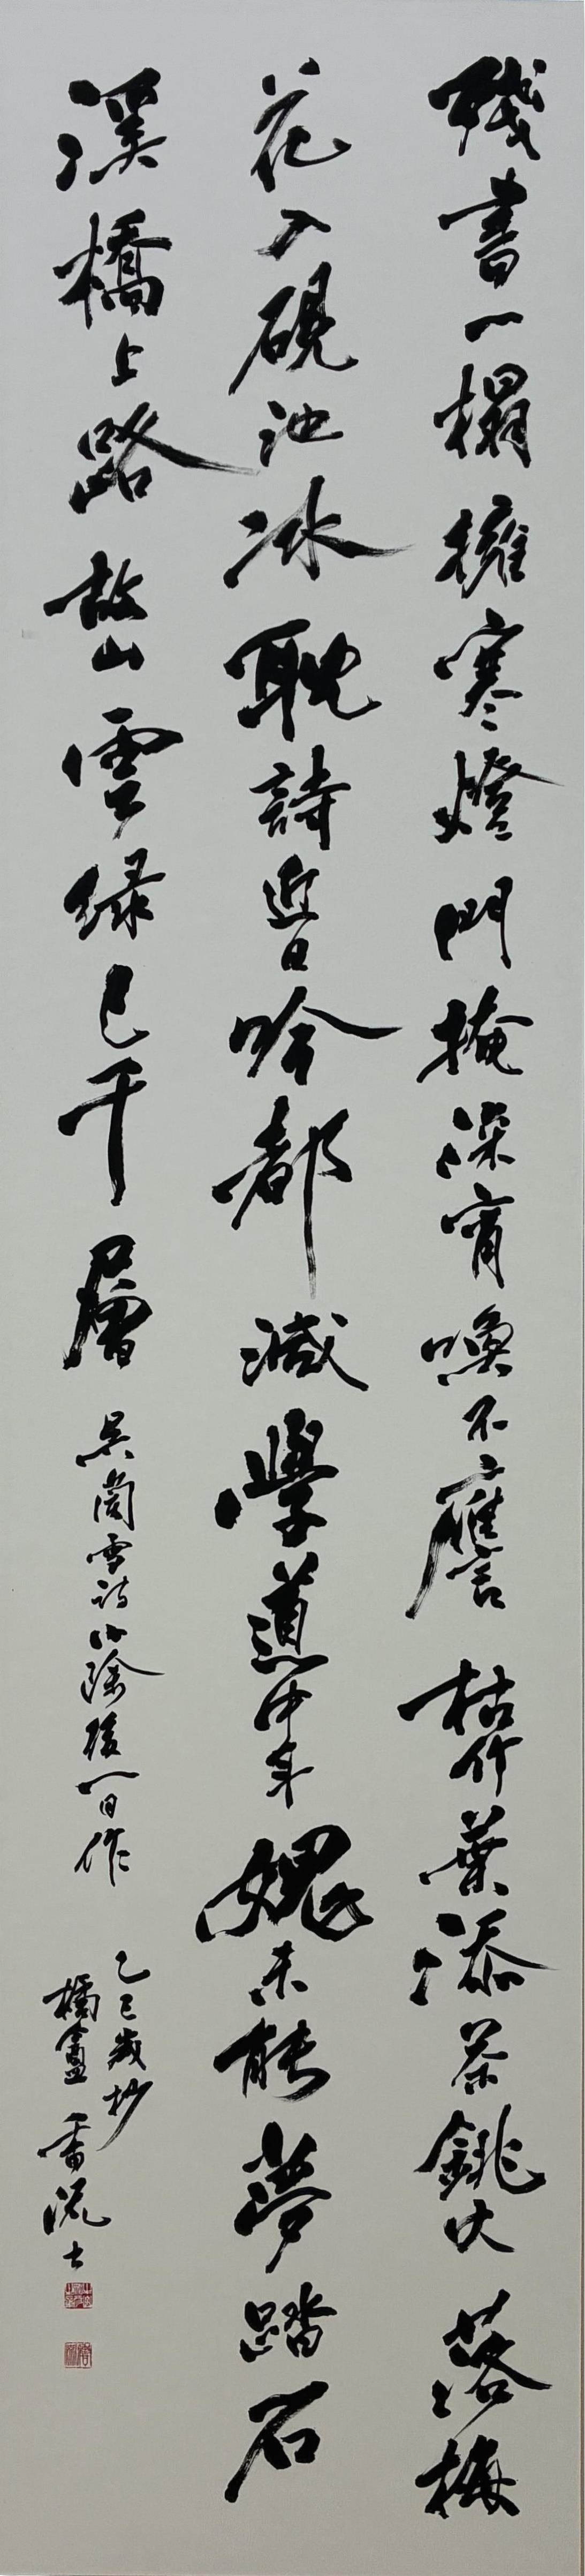 殘書一榻擁寒燈門掩深宵喚不譍枯竹葉添茶銚火落梅
花入硯池冰耽詩近日吟都減學道中年媿未能夢踏石
溪橋上路故山雲綠已千層 吳蘭雪詩小除後一日作
乙巳歲杪
橘盦